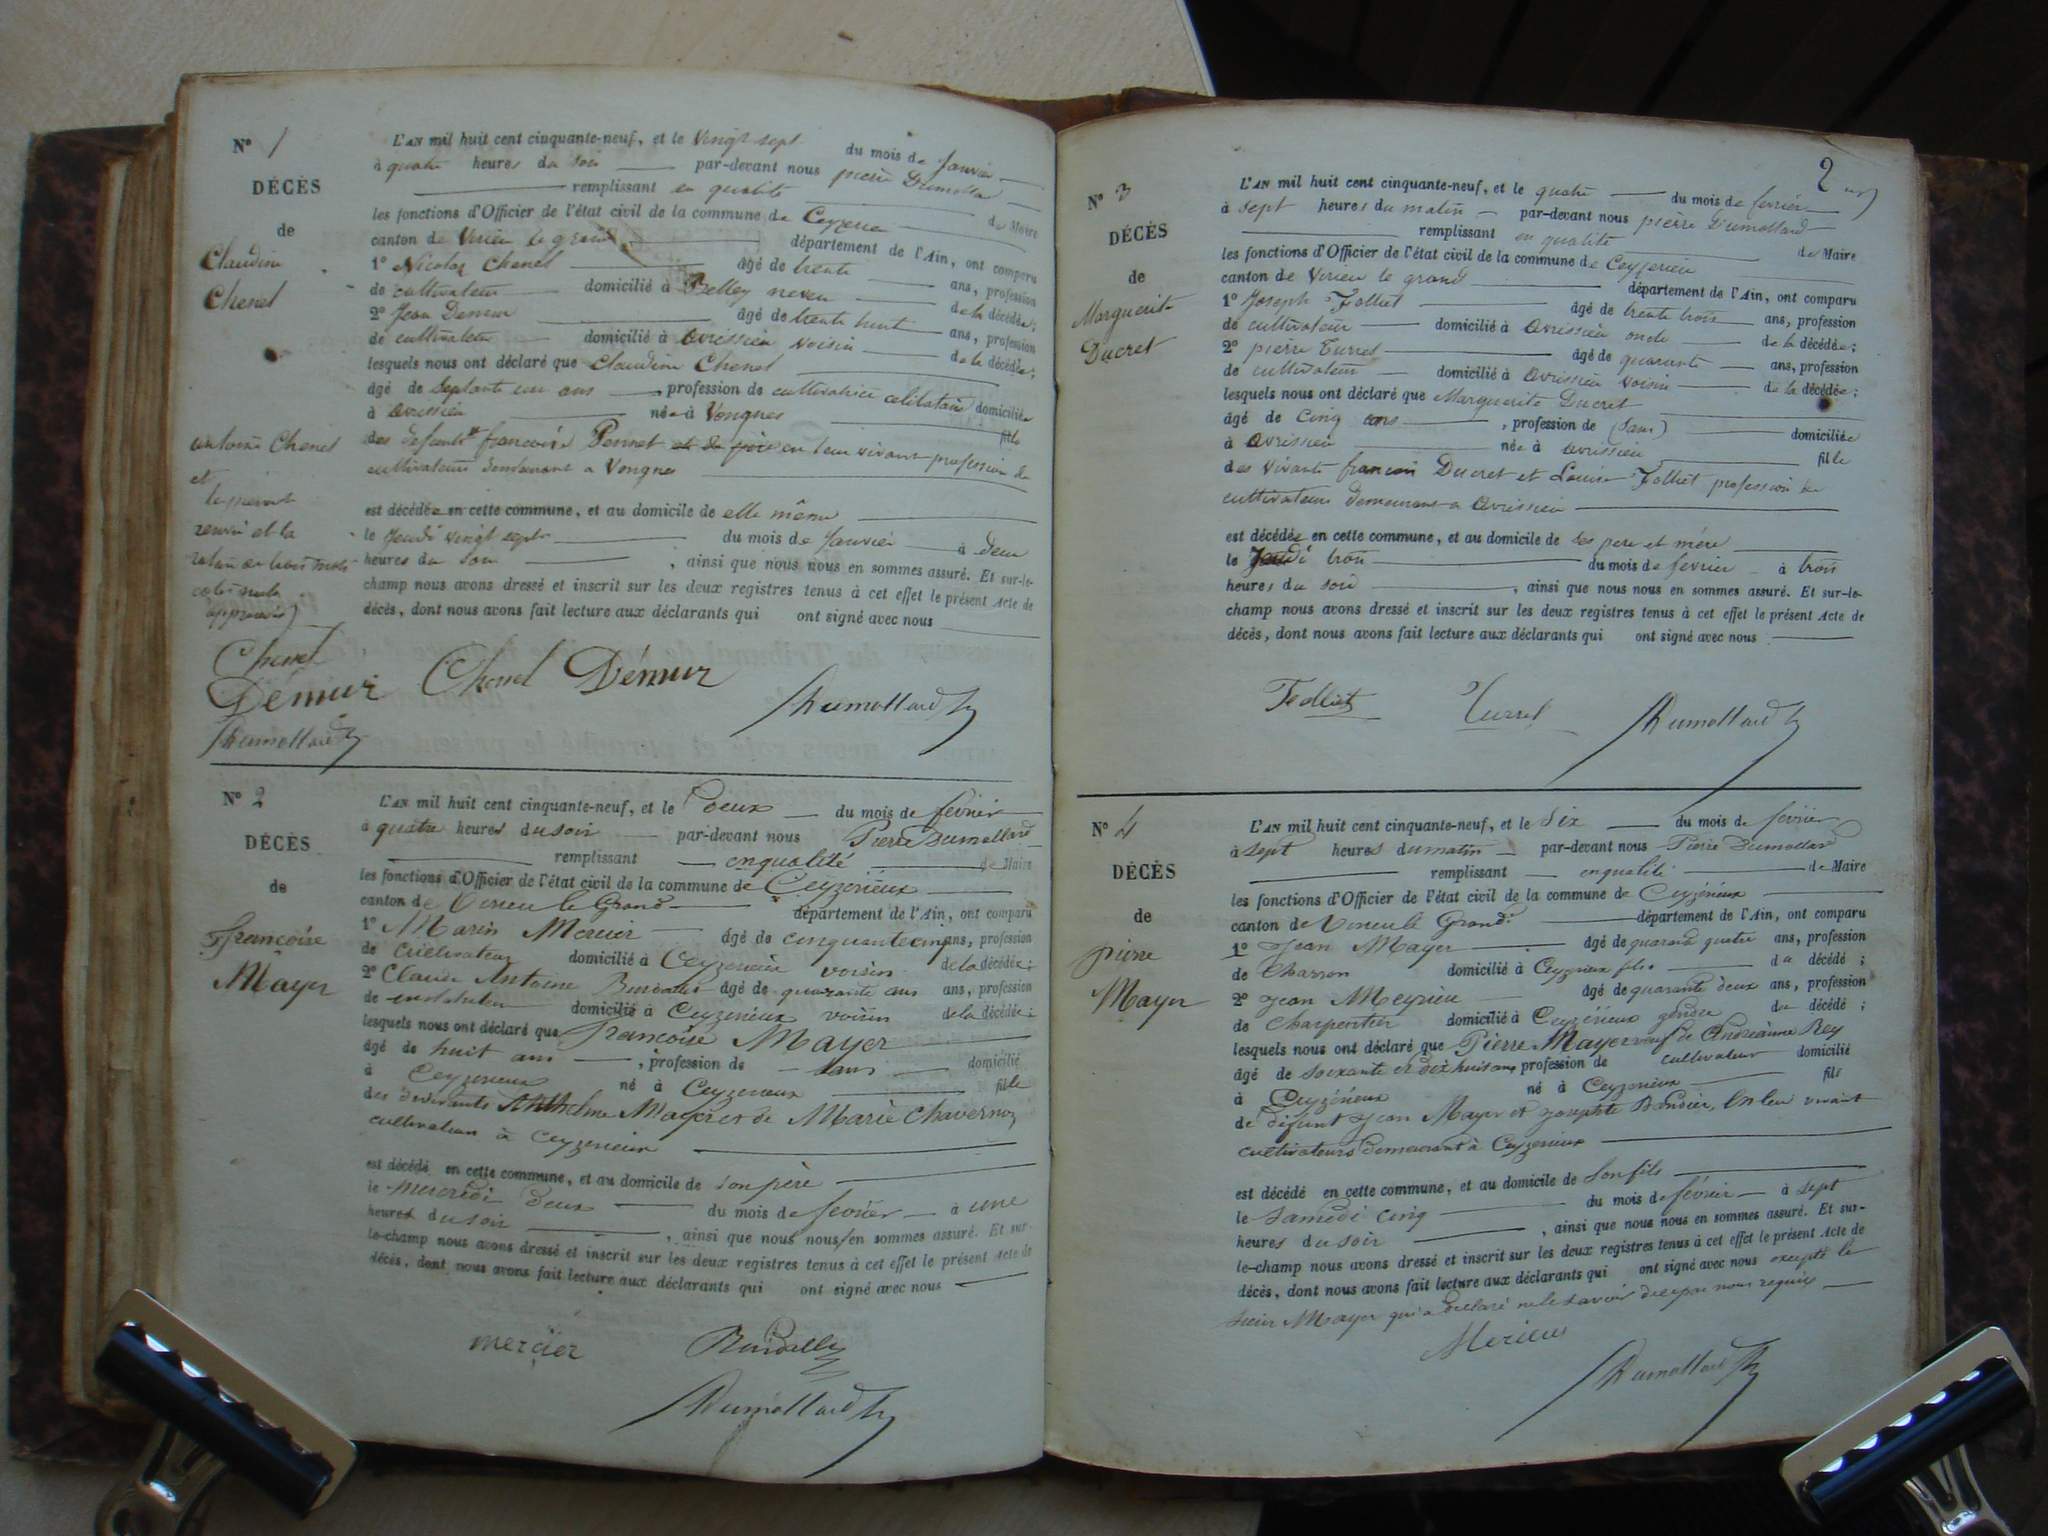 N° 1
DÉCÈS
de
Claudine
Chenel
L'AN mil huit cent cinquante-neuf, et le vingt sept du mois de Janvier
à quatre heures du soir par-devant nous pierre Dumollard
remplissant en qualité de Maire
les fonctions d'Officier de l'état civil de la commune de Ceyzerieu
canton de Virieu le grand département de l'Ain, ont comparu
1° Nicolas Chenel âgé de trente ans, profession
de cultivateur domicilié à Belley neveu de la décédée;
2° Jean Demur âgé de trente huit ans, profession
de cultivateur domicilié à Avrissieu voisin de la décédée;
lesquels nous ont déclaré que Claudine Chenel
âgé de Septante un ans, profession de cultivatrice célibataire domiciliée
à Avrissieu née à Vongnes fille
des defunts françoise Pennet et de en leur vivant profession de
cultivateurs demeurant a Vongnes
est décédée en cette commune, et au domicile de elle même
le Jeudi vingt sept du mois de Janvier à deux
heures du soir, ainsi que nous nous en sommes assuré. Et sur-le-
champ nous avons dressé et inscrit sur les deux registres tenus à cet effet le présent Acte de
décès, dont nous avons fait lecture aux déclarants qui ont signé avec nous
antoine Chenel
et
le present
renvoi et la
rature de trois mots
approuvés
Chenel
Démur Chenel Démur Dumollard
Dumollard
N° 2
DÉCÈS
de
françoise
Mayer
L'AN mil huit cent cinquante-neuf, et le Deux du mois de février
à quatre heures du soir par-devant nous Pierre Dumollard
remplissant en qualité de Maire
les fonctions d'Officier de l'état civil de la commune de Ceyzerieux
canton de Virieu le Grand département de l'Ain, ont comparu
1° Marin Mercier âgé de cinquante cinq ans, profession
de cultivateur domicilié à Ceyzerieux voisin de la décédée;
2° Claude Antoine Bindally âgé de quarante ans ans, profession
de domicilié à Ceyzerieux voisin de la décédée;
lesquels nous ont déclaré que Francoise Mayer
âgé de huit ans, profession de sans domicilié
à Ceyzerieux né à Ceyzerieux fille
des vivants Anthelme Mayer et de Marie Chavernoz
cultivateurs à Ceyzerieux
est décédé en cette commune, et au domicile de son père
le mercredi deux du mois de février à une
heures du soir, ainsi que nous nous en sommes assuré. Et sur-
le-champ nous avons dressé et inscrit sur les deux registres tenus à cet effet le présent Acte de
décès, dont nous avons fait lecture aux déclarants qui ont signé avec nous
mercier Bindally
Dumollard
2
N° 3
DÉCÈS
de
Marguerite
Ducret
L'AN mil huit cent cinquante-neuf, et le quatre du mois de fevrier
à sept heures du matin par-devant nous pierre Dumollard
remplissant en qualité de Maire
les fonctions d'Officier de l'état civil de la commune de Ceyzerieu
canton de Virieu le grand département de l'Ain, ont comparu
1° Joseph Folliet âgé de trente trois ans, profession
de cultivateur domicilié à Avrissieu oncle de la décédée;
2° pierre Turrel âgé de quarante ans, profession
de cultivateur domicilié à Avrissieu voisin de la décédée;
lesquels nous ont déclaré que Marguerite Ducret
âgé de cinq ans, profession de (sans) domiciliée
à Avrissieu née à Avrissieu fille
des vivants francois Ducret et Louise Folliet profession de
cultivateurs demeurant a Avrissieu
est décédée en cette commune, et au domicile de ses pere et mére
le Jeudi trois du mois de fevrier à trois
heures du soir, ainsi que nous nous en sommes assuré. Et sur-le-
champ nous avons dressé et inscrit sur les deux registres tenus à cet effet le présent Acte de
décès, dont nous avons fait lecture aux déclarants qui ont signé avec nous
Folliet Turrel Dumollard
N° 4
DÉCÈS
de
pierre
Mayer
L'AN mil huit cent cinquante-neuf, et le Six du mois de février
à sept heures du matin par-devant nous Pierre Dumollard
remplissant en qualité de Maire
les fonctions d'Officier de l'état civil de la commune de Ceyzérieux
canton de Virieu le Grand département de l'Ain, ont comparu
1° Jean Mayer âgé de quarante quatre ans, profession
de Charron domicilié à Ceyzerieux fils du décédé;
2° Jean Meyrieu âgé de quarante deux ans, profession
de Charpentier domicilié à Ceyzérieux gendre du décédé;
lesquels nous ont déclaré que Pierre Mayer veuf de Andréanne Rey
âgé de soixante et dix huit ans profession de cultivateur domicilié
à Ceyzérieux né à Ceyzerieux fils
de défunt Jean Mayer et Josephte Bandier, en leur vivant
cultivateurs demeurant à Ceyzerieux
est décédé en cette commune, et au domicile de son fils
le samedi cinq du mois de février à sept
heures du soir, ainsi que nous nous en sommes assuré. Et sur-
le-champ nous avons dressé et inscrit sur les deux registres tenus à cet effet le présent Acte de
décès, dont nous avons fait lecture aux déclarants qui ont signé avec nous excepté le
sieur Mayer qui a déclaré ne le savoir de ce par nous requis
Merieux
Dumollard